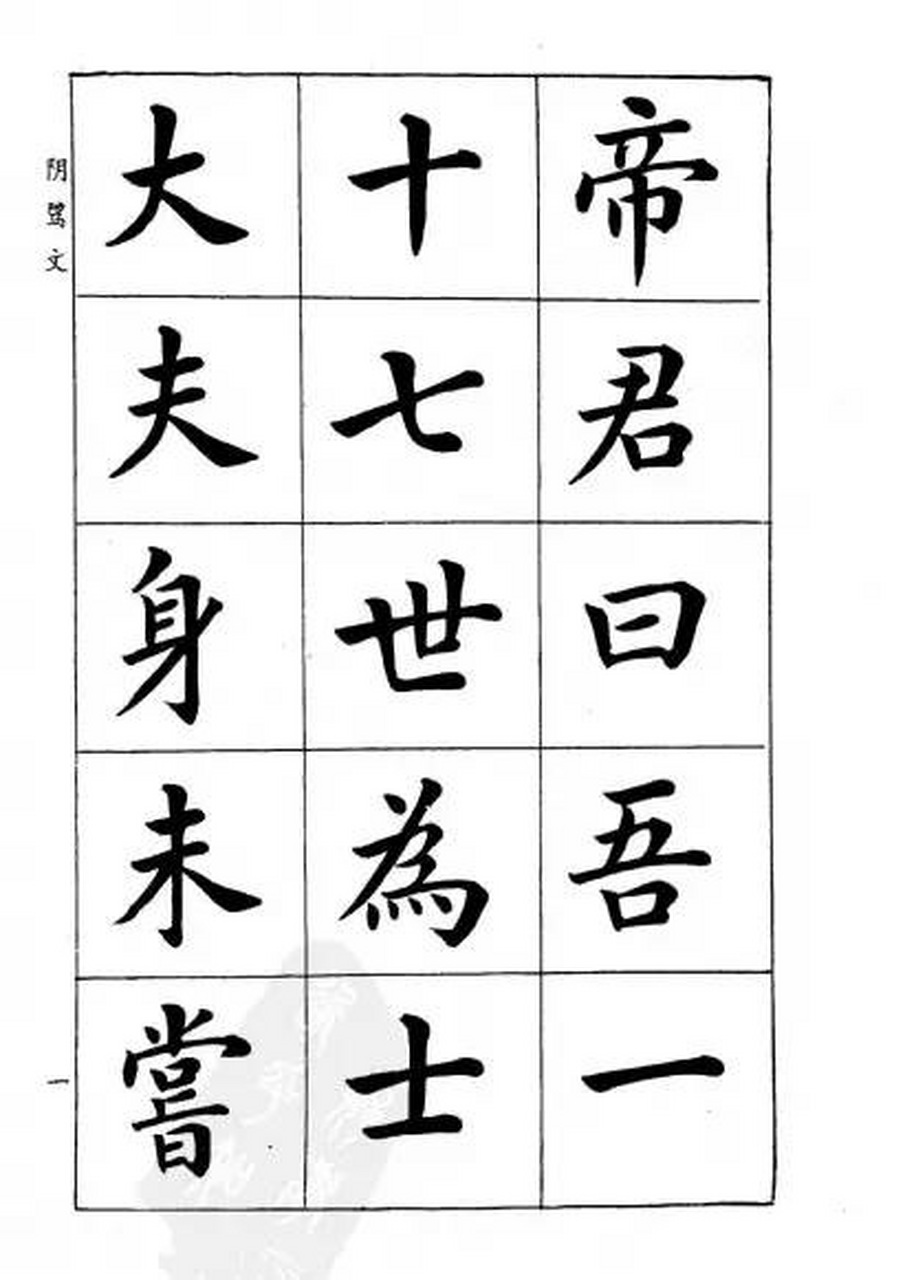 帝君曰吾一
十七世為士
大夫身未嘗
阴骘文
一